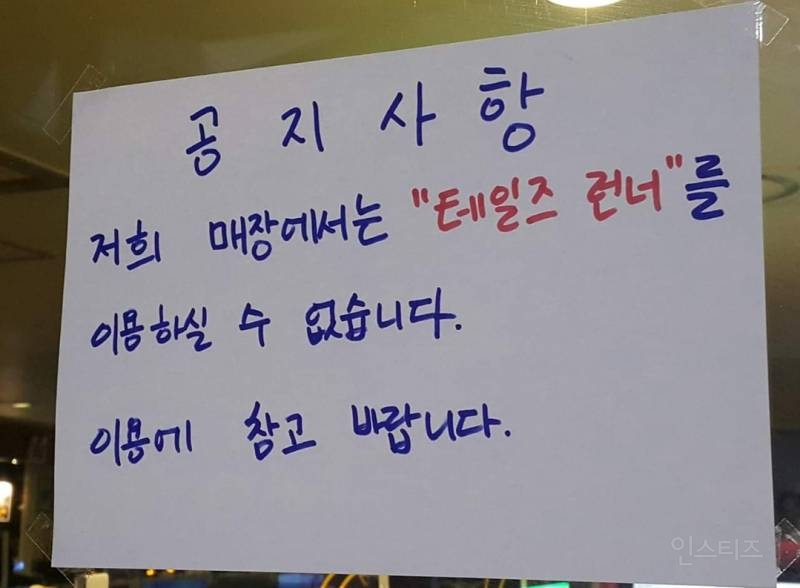 공지사항
저희 매장에서는 "테일즈 런너"를
이용하실 수 없습니다.
이용에 참고 바랍니다.
인스티즈